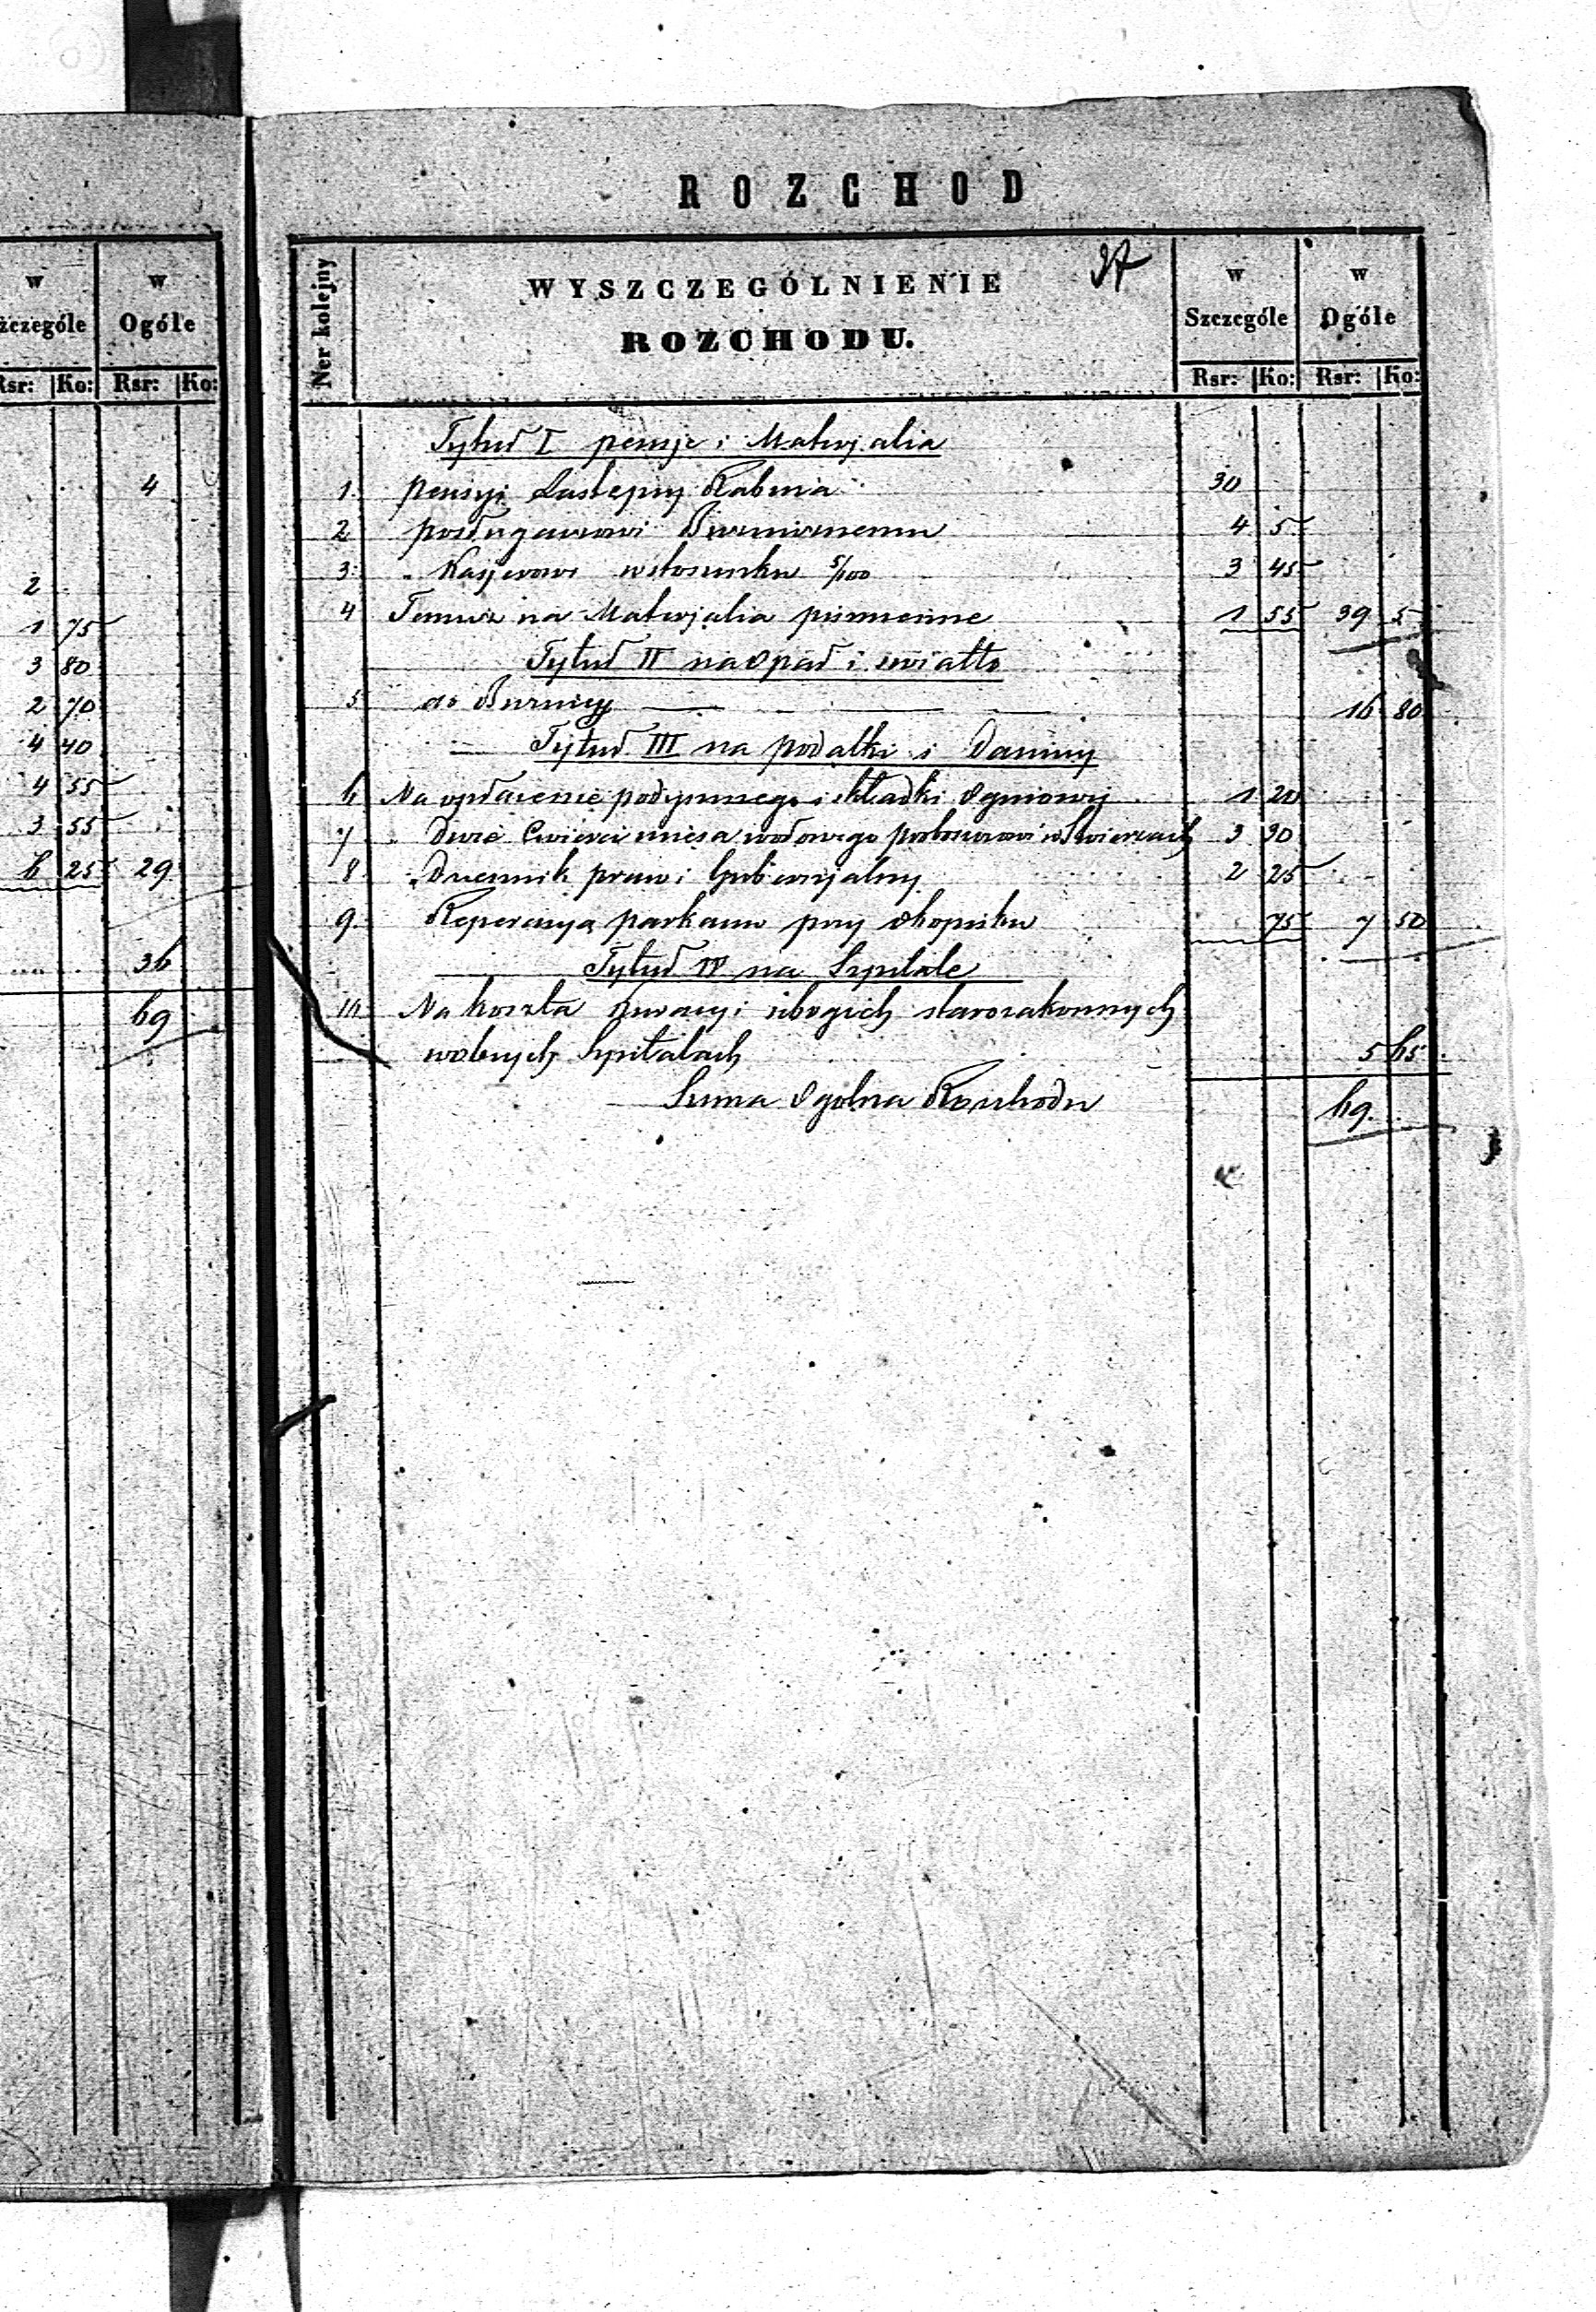 w
Szczególe
w
Ogóle
Rsr: Ko: Rsr: Ko:
4
2
1 75
3 80
2 70
4 40
4 55
3 55
6 25 29
36
69
ROZCHOD
Ner kolejny
WYSZCZEGÓLNIENIE
ROZCHODU.
w
Szczególe
w
Ogóle
Rsr: Ko: Rsr: Ko:
Tytuł I pensje i Materjalia
1. pensyi Zastępcy Rabina 30
2 posługaczowi Burnicznemu 4 5
3. " Kasjerowi wstosunku 5/100 3 45
4 Temuż na Materjalia piśmienne 1 55 39 5
Tytuł II na Opał i swiatło
5 do Burnicy 16 80
Tytuł III na podatki i Daniny
6 Na opłacenie podymnego i składki Ogniowej 1 20
7 " Dwie Cwierci mięsa wołowego proboszczowi w Swierzach 3 30
8 " Dziennik praw i Gubernjalny 2 25
9. Reperacya parkanu przy okopisku 75 7 50
Tytuł IV na Szpitale
10 Na koszta kuracyi ubogich starozakonnych
wobcych Szpitalach 5 65
Suma Ogolna Rozchodu 69.